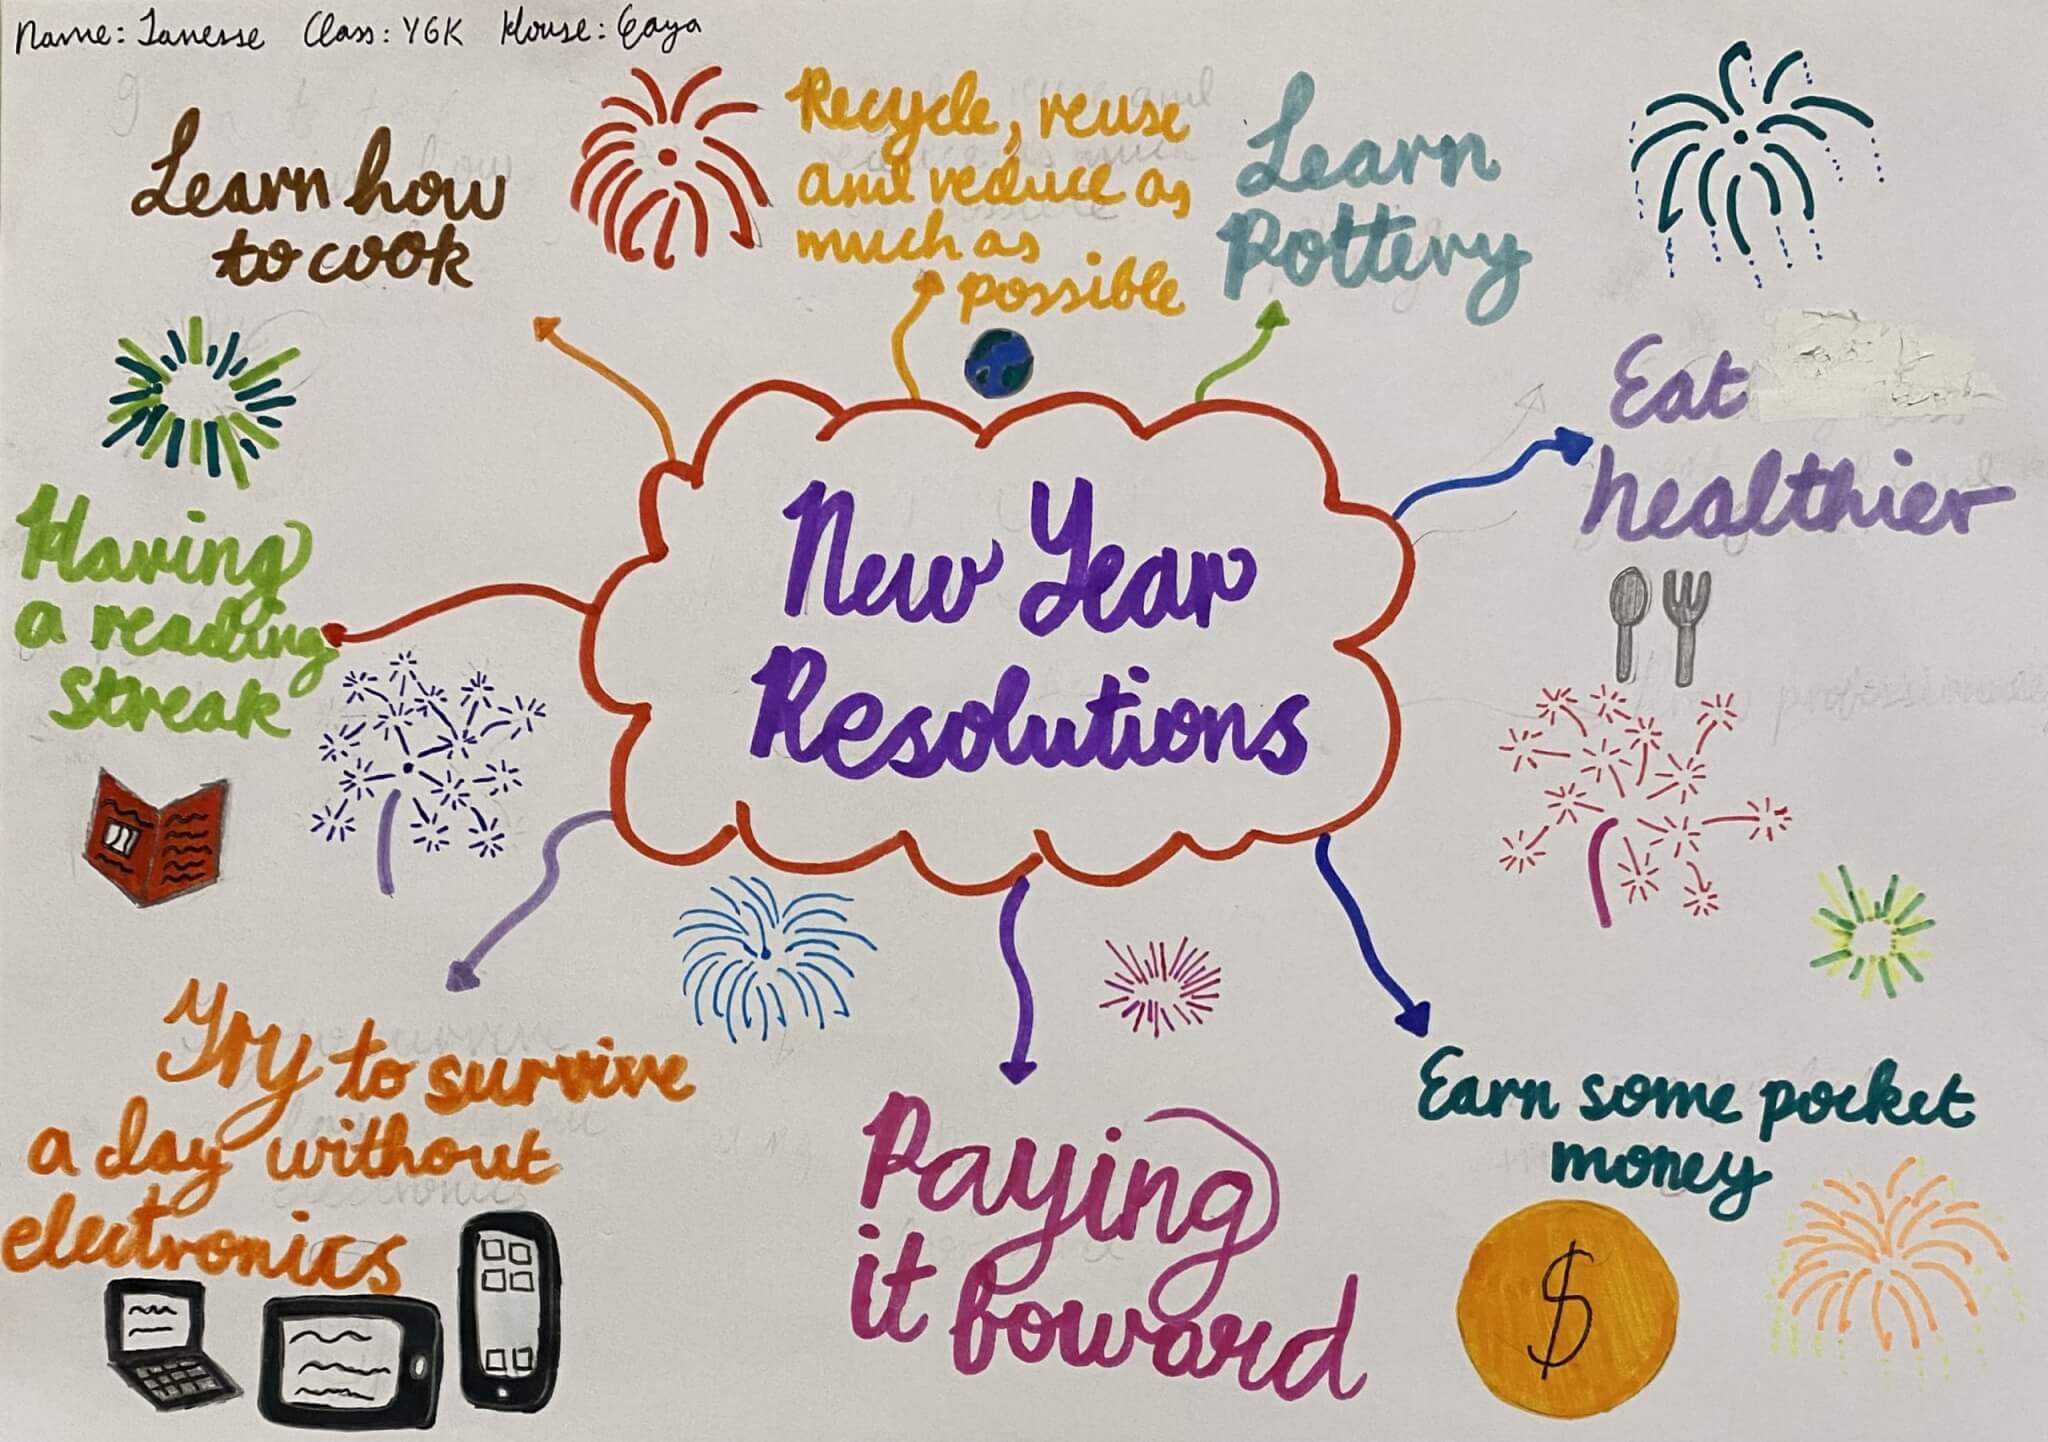 Name: Janesse Class: Y6K House: Gaya
Learn how
to cook
Recycle, reuse
and reduce as
much as
possible
Learn
Pottery
Eat
healthier
Having
a reading
streak
New Year
Resolutions
Try to survive
a day without
electronics
Paying
it foward
Earn some pocket
money
$